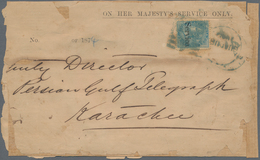 ON HER MAJESTY'S SERVICE ONLY.
No
puty Director
Persian Gulf Telegraph
Karachee